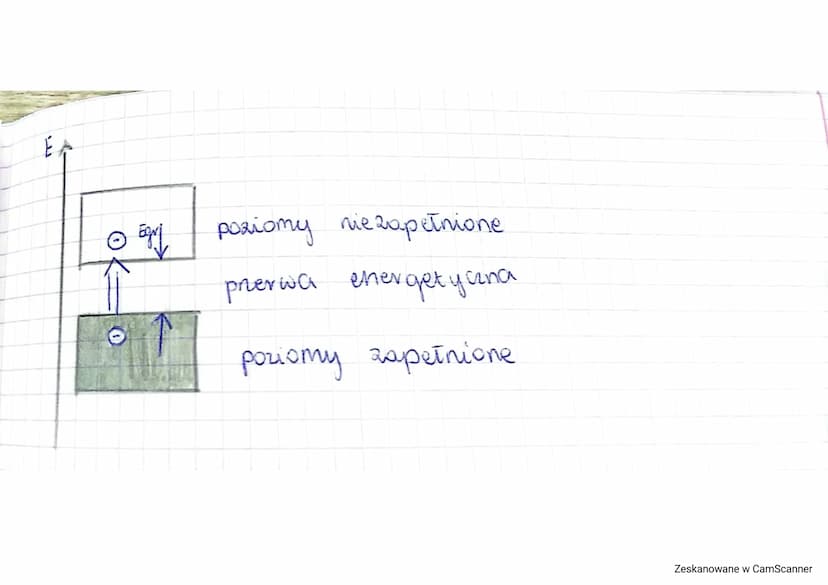 E
poziomy niezapełnione
przerwa energetyczna
poziomy zapełnione
Zeskanowane w CamScanner